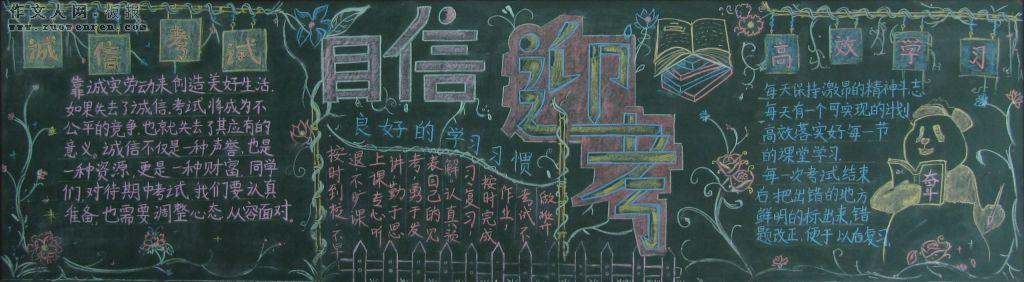 作文人网·板报
www.zuowenren.com
诚信考试
靠诚实劳动来创造美好生活.
如果失去了诚信,考试将成为不
公平的竞争,也就失去了其应有的
意义。诚信不仅是一种声誉,也是
一种资源,更是一种财富,同学
们,对待期中考试,我们要认真
准备,也需要调整心态,从容面对.
自信迎考
良好的学习习惯
按时到校
迟不旷课
上课专心听
讲,勤于思
考,勇于发
表自己的见
解,认真
习,复习
按时完成
作业,
考试不
做弊
高效学习
每天保持激昂的精神斗志
每天有一个可实现的计划
高效落实好每一节
的课堂学习.
每一次考试结束
后,把出错的地方
鲜明的标出来,错
题改正,便于以后复习.